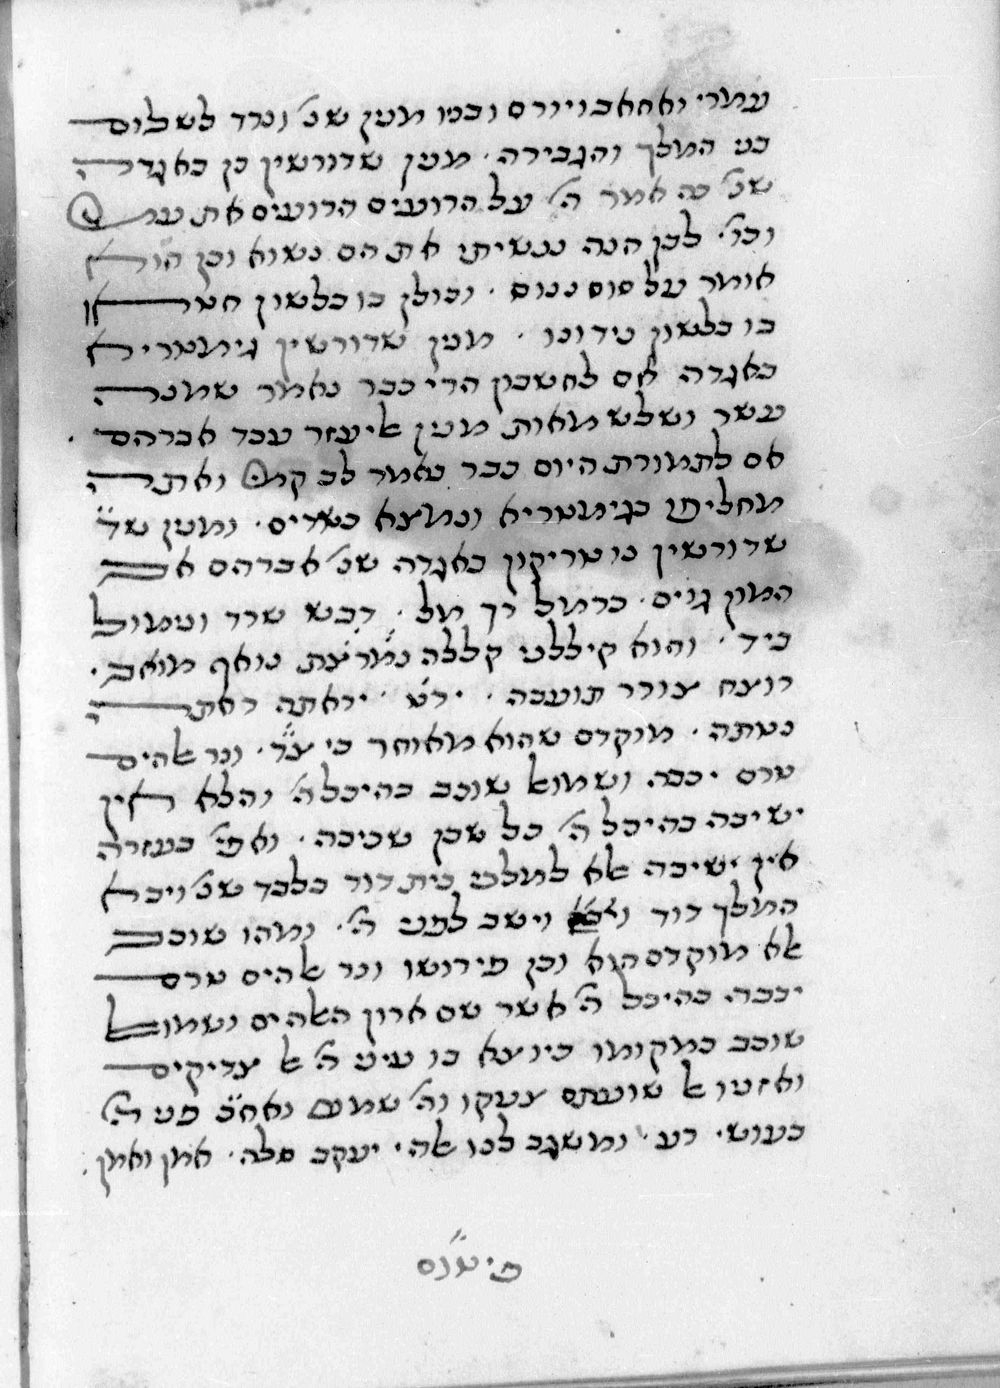 עמרי ואחאב ויורם וכמו מנין שנ׳ ונרד לשלום
בני המלך והגבירה. מנין שדורשין כן באגדה
שנ׳ כה אמר ה׳ על הרועים הרועים את עמי
וכו׳ לכן הנה ונשיתי את הם נשוא וכן הוא
אומר על סוס ננוס. וכולן בו בלשון חטאו
בו בלשון נידונו. מנין שדורשין גימטריא
באגדה אם לחשבון הרי כבר נאמר שמנה
עשר ושלש מאות מנין אליעזר עבד אברהם.
אם לתמורת היום כבר נאמר לב קמי ואתה
מחליף בגימטריא ונמצא כשדים. ומנין
שדורשין נוטריקון באגדה שנ׳ אברהם אב
המון גוים. כרמל רך מל. דבש שרד וטמון
ביד. והוא קיללני קללה נמרצת נואף מואבי.
רוצח צורר תועבה. ירט יראתה ראתה
נטתה. מוקדם שהוא מאוחר כי צד. ונר אלהים
טרם יכבה ושמואל שוכב בהיכל ה׳ והלא אין
ישיבה בהיכל ה׳ כל שכן שכיבה. ואפי׳ בעזרה
אין ישיבה אלא למלכי בית דוד בלבד שנ׳ ויבא
המלך דוד וישב לפני ה׳. ומהו שוכב
אלא מוקדם הוא וכן פירושו ונר אלהים טרם
יכבה בהיכל ה׳ אשר שם ארון האלהים ושמואל
שוכב במקומו כיוצא בו עיני ה׳ אל צדיקים
ואזניו אל שועתם צעקו וה׳ שמע ואח״כ פני ה׳
בעושי רע. ומשגב לנו אלהי יעקב סלה. אמן ואמן.